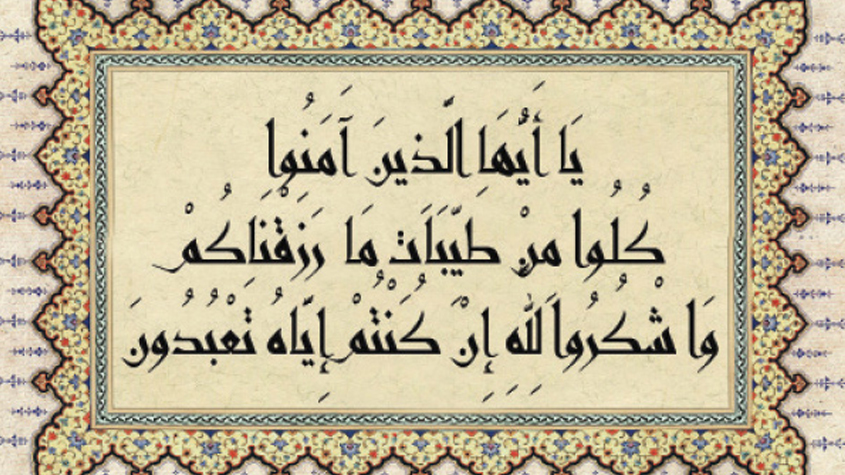 يَا أَيُّهَا الَّذِينَ آمَنُوا
كُلُوا مِنْ طَيِّبَاتِ مَا رَزَقْنَاكُمْ
وَاشْكُرُوا لِلَّهِ إِنْ كُنْتُمْ إِيَّاهُ تَعْبُدُونَ